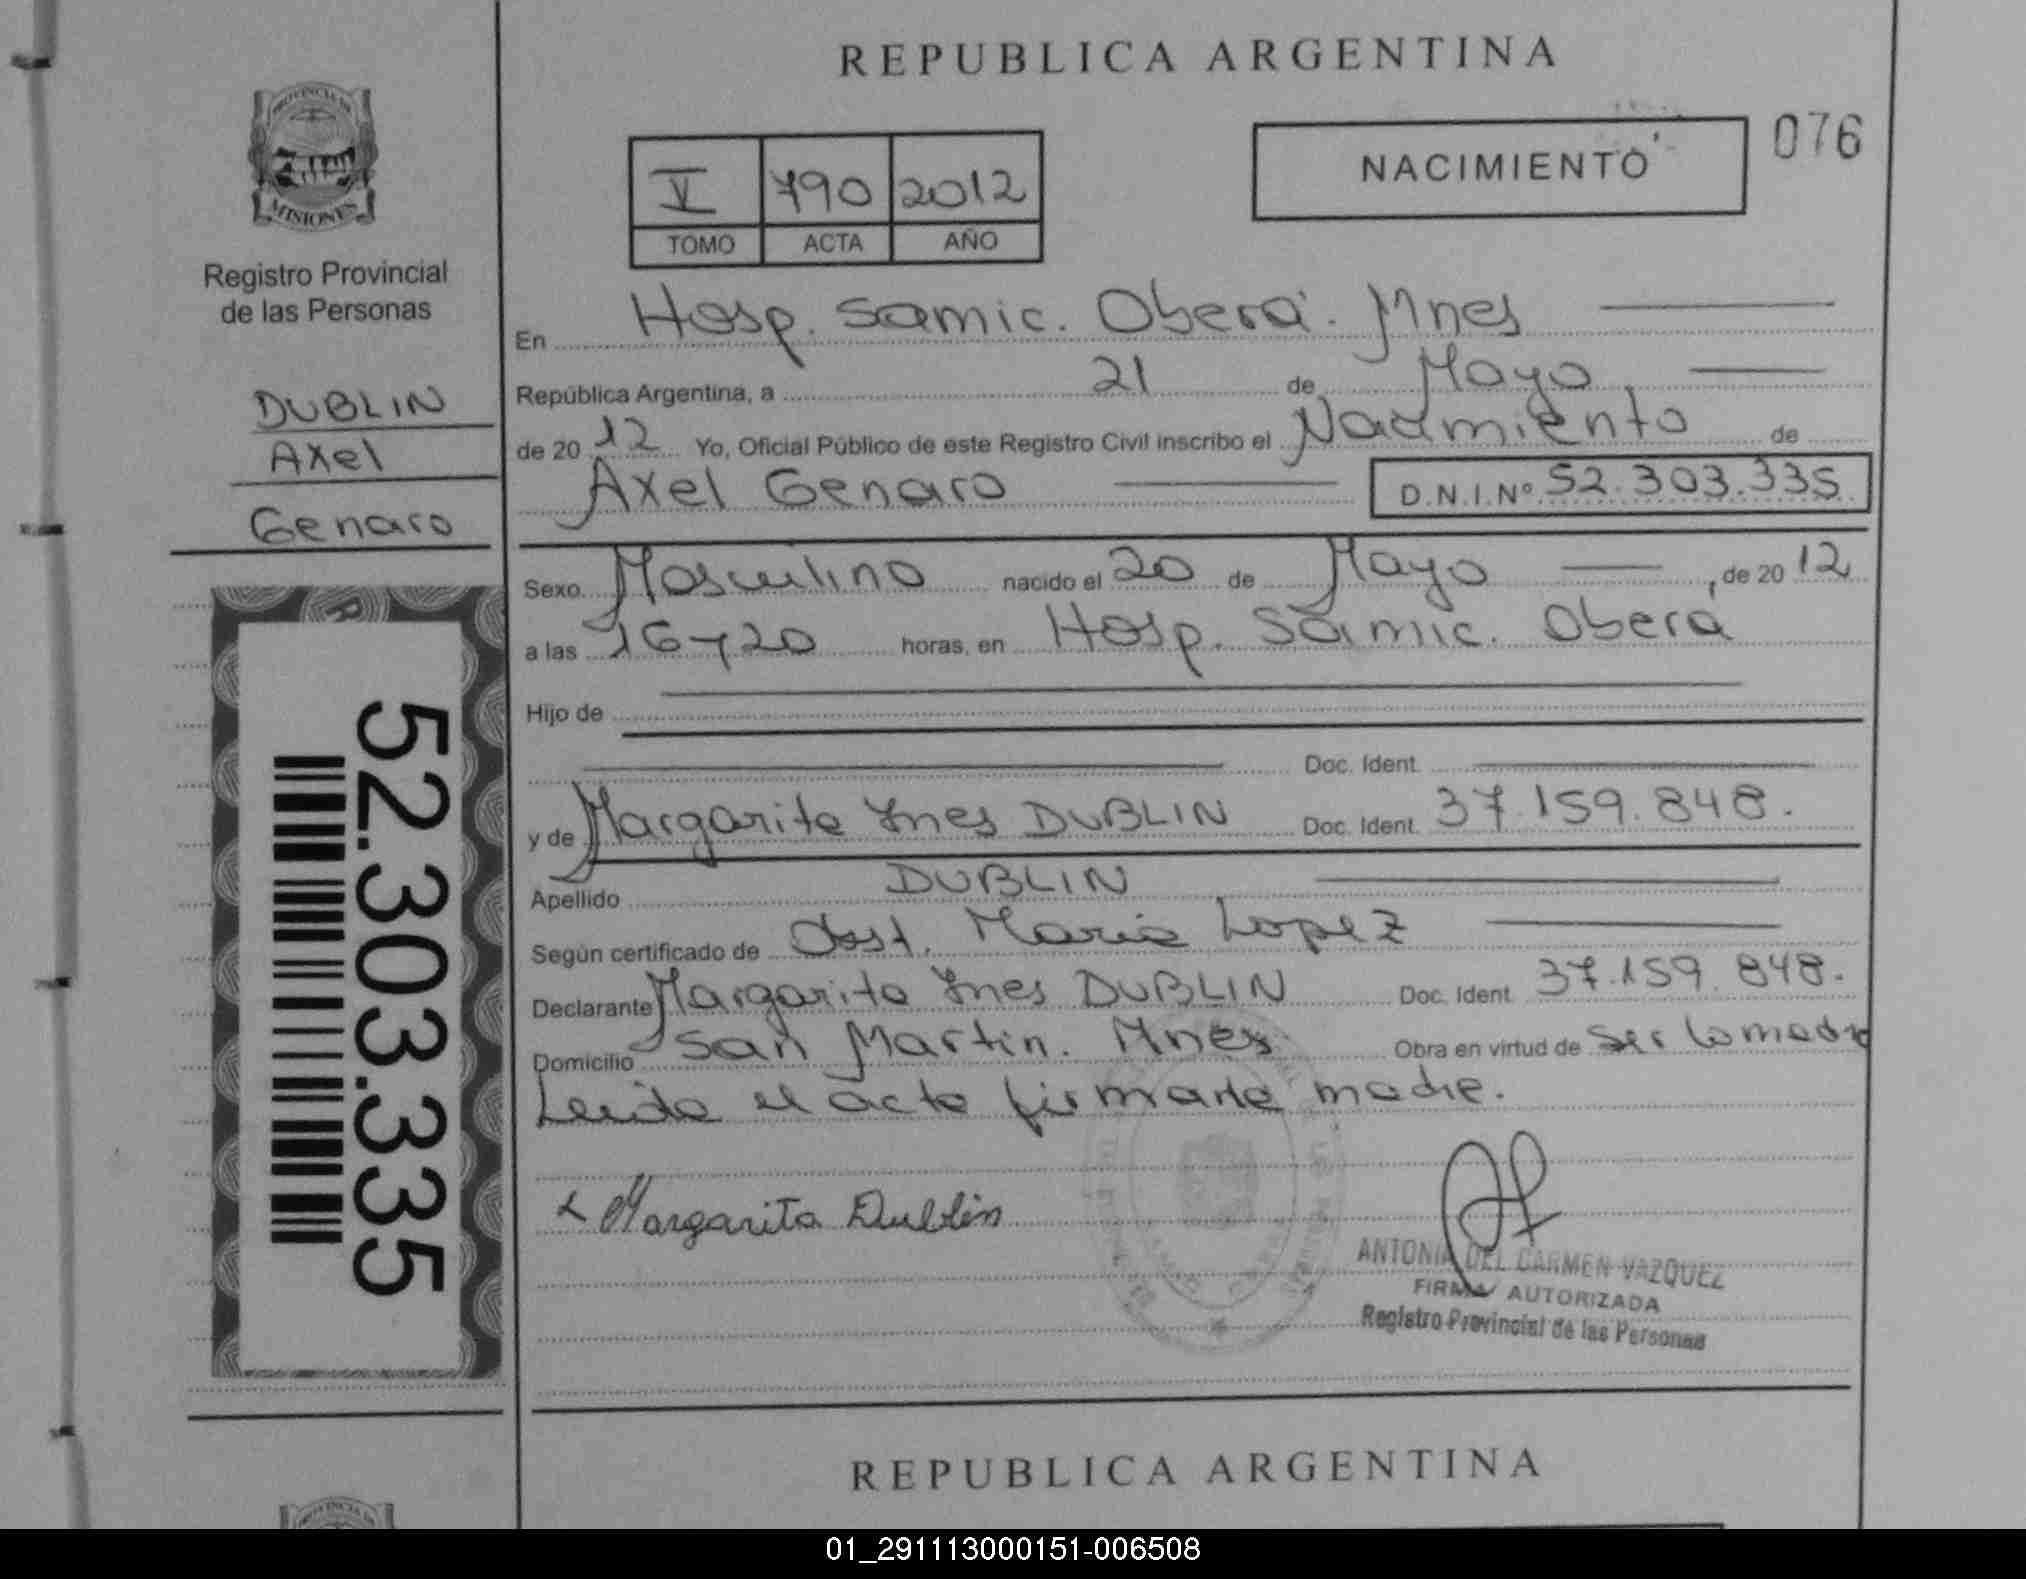 REPUBLICA ARGENTINA
NACIMIENTO
076
V 790 2012
TOMO ACTA AÑO
PROVINCIA DE
MISIONES
Registro Provincial
de las Personas
DUBLIN
Axel
Genaro
52.303.335
En Hosp. Samic. Oberá. Mnes
República Argentina, a 21 de Mayo
de 2012 Yo, Oficial Público de este Registro Civil inscribo el Nacimiento de
Axel Genaro D.N.I.Nº 52.303.335
Sexo Masculino nacido el 20 de Mayo, de 2012
a las 16 y 20 horas, en Hosp. Samic. Oberá
Hijo de
Doc. Ident.
y de Margarita Ines DUBLIN Doc. Ident. 37.159.848.
Apellido DUBLIN
Según certificado de Obst. Maria Lopez
Declarante Margarita Ines DUBLIN Doc. Ident. 37.159.848.
Domicilio San Martin. Mnes. Obra en virtud de ser la madre
Leida el acta firmante madre.
Margarita Dublin
ANTONIA DEL CARMEN VAZQUEZ
FIRMA AUTORIZADA
Registro Provincial de las Personas
REPUBLICA ARGENTINA
01_291113000151-006508